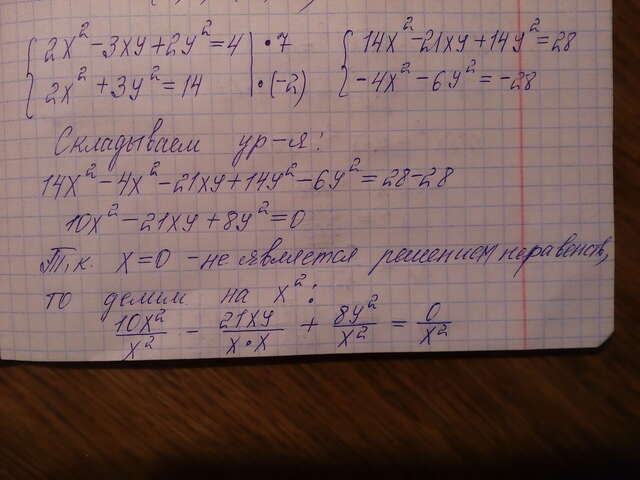 {2x² - 3xy + 2y² = 4 | • 7 {14x² - 21xy + 14y² = 28
2x² + 3y² = 14 | • (-2) -4x² - 6y² = -28
Складываем ур-я:
14x² - 4x² - 21xy + 14y² - 6y² = 28 - 28
10x² - 21xy + 8y² = 0
Т.к. x = 0 - не является решением неравенств,
то делим на x²:
10x²/x² - 21xy/x•x + 8y²/x² = 0/x²